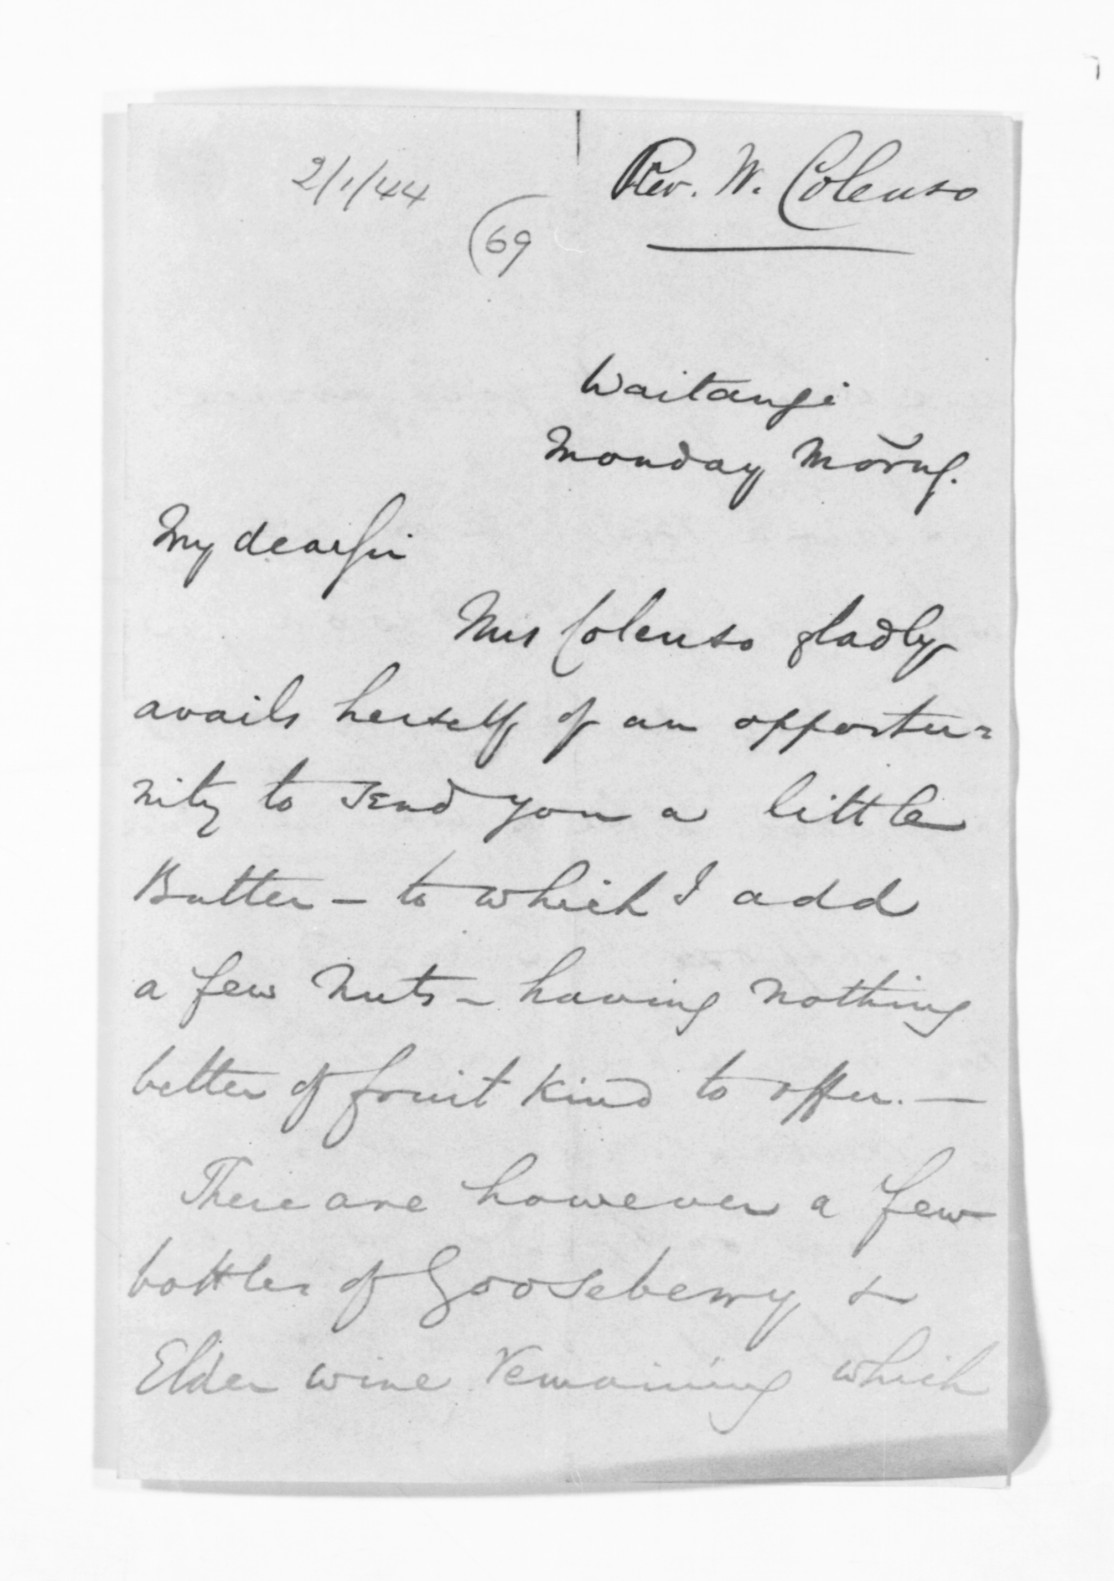 2/1/44
Rev. W. Colenso
(69
Waitangi
Monday Morng.
My dear Sir
Mrs Colenso gladly
avails herself of an opportu=
nity to send you a little
Butter – to which I add
a few Nuts – having nothing
better of fruit kind to offer. —
There are however a few
bottles of Gooseberry &
Elder wine remaining which